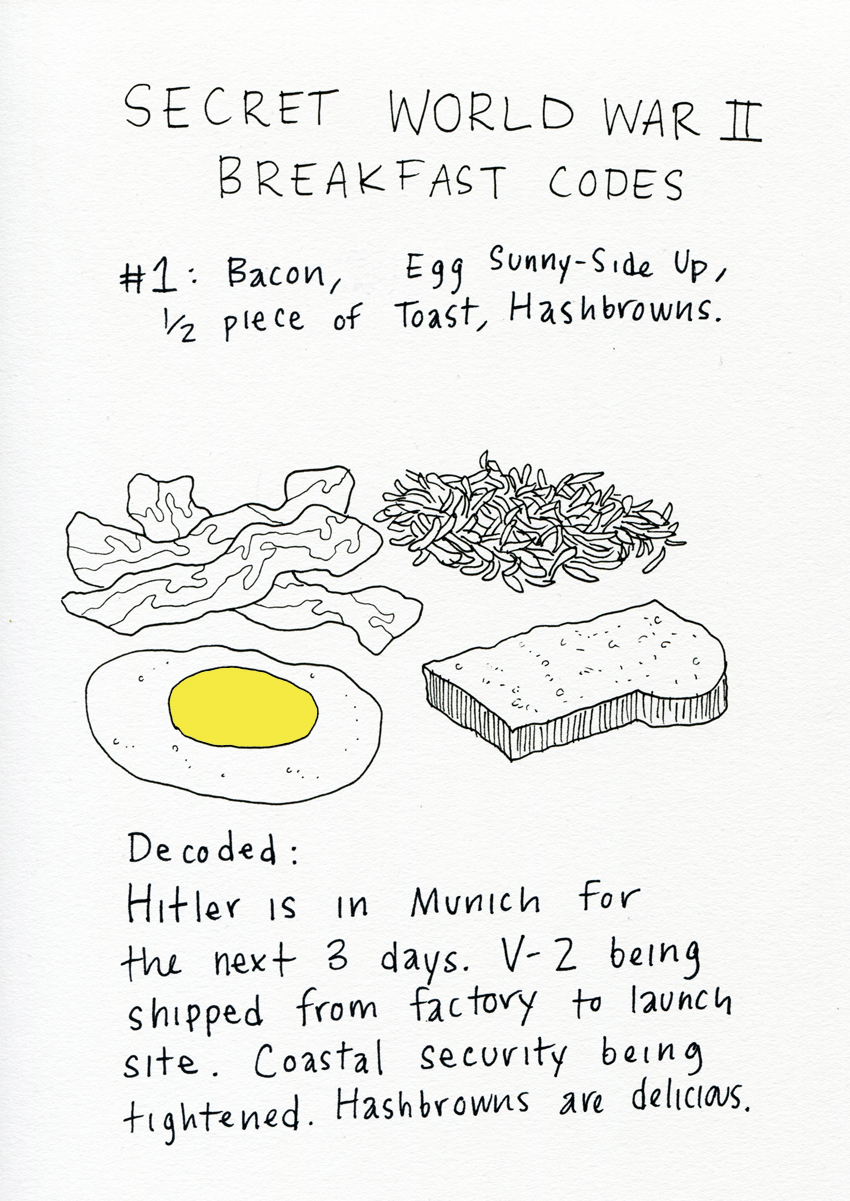 SECRET WORLD WAR II
BREAKFAST CODES
#1: Bacon, Egg Sunny-Side Up,
1/2 piece of Toast, Hashbrowns.
Decoded:
Hitler is in Munich for
the next 3 days. V-2 being
shipped from factory to launch
site. Coastal security being
tightened. Hashbrowns are delicious.